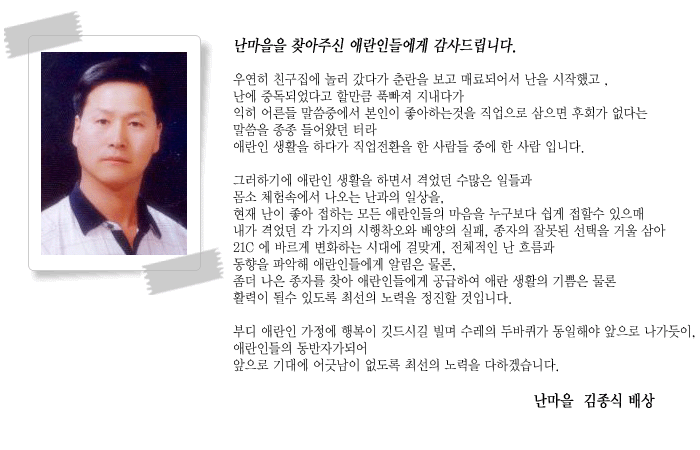 난마을을 찾아주신 애란인들에게 감사드립니다.
우연히 친구집에 놀러 갔다가 춘란을 보고 매료되어서 난을 시작했고 .
난에 중독되었다고 할만큼 푹빠져 지내다가
익히 어른들 말씀중에서 본인이 좋아하는것을 직업으로 삼으면 후회가 없다는
말씀을 종종 들어왔던 터라
애란인 생활을 하다가 직업전환을 한 사람들 중에 한 사람 입니다.
그러하기에 애란인 생활을 하면서 격었던 수많은 일들과
몸소 체험속에서 나오는 난과의 일상을.
현재 난이 좋아 접하는 모든 애란인들의 마음을 누구보다 쉽게 접할수 있으매
내가 격었던 각 가지의 시행착오와 배양의 실패. 종자의 잘못된 선택을 거울 삼아
21C 에 바르게 변화하는 시대에 걸맞게. 전체적인 난 흐름과
동향을 파악해 애란인들에게 알림은 물론.
좀더 나은 종자를 찾아 애란인들에게 공급하여 애란 생활의 기쁨은 물론
활력이 될수 있도록 최선의 노력을 정진할 것입니다.
부디 애란인 가정에 행복이 깃드시길 빌며 수레의 두바퀴가 동일해야 앞으로 나가듯이.
애란인들의 동반자가되어
앞으로 기대에 어긋남이 없도록 최선의 노력을 다하겠습니다.
난마을 김종식 배상